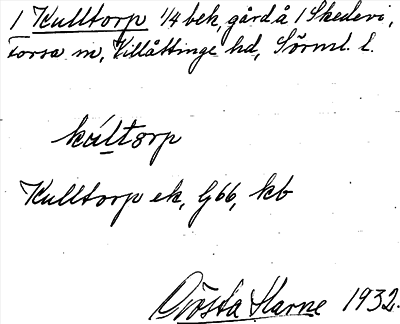 1 Kulltorp 1/4 bek, gård å 1 Skedevi,
Torsa sn, Villåttinge hd, Sörml. l.
kúltorp
Kulltorp ek, G66, kb
Gösta Harne 1932.